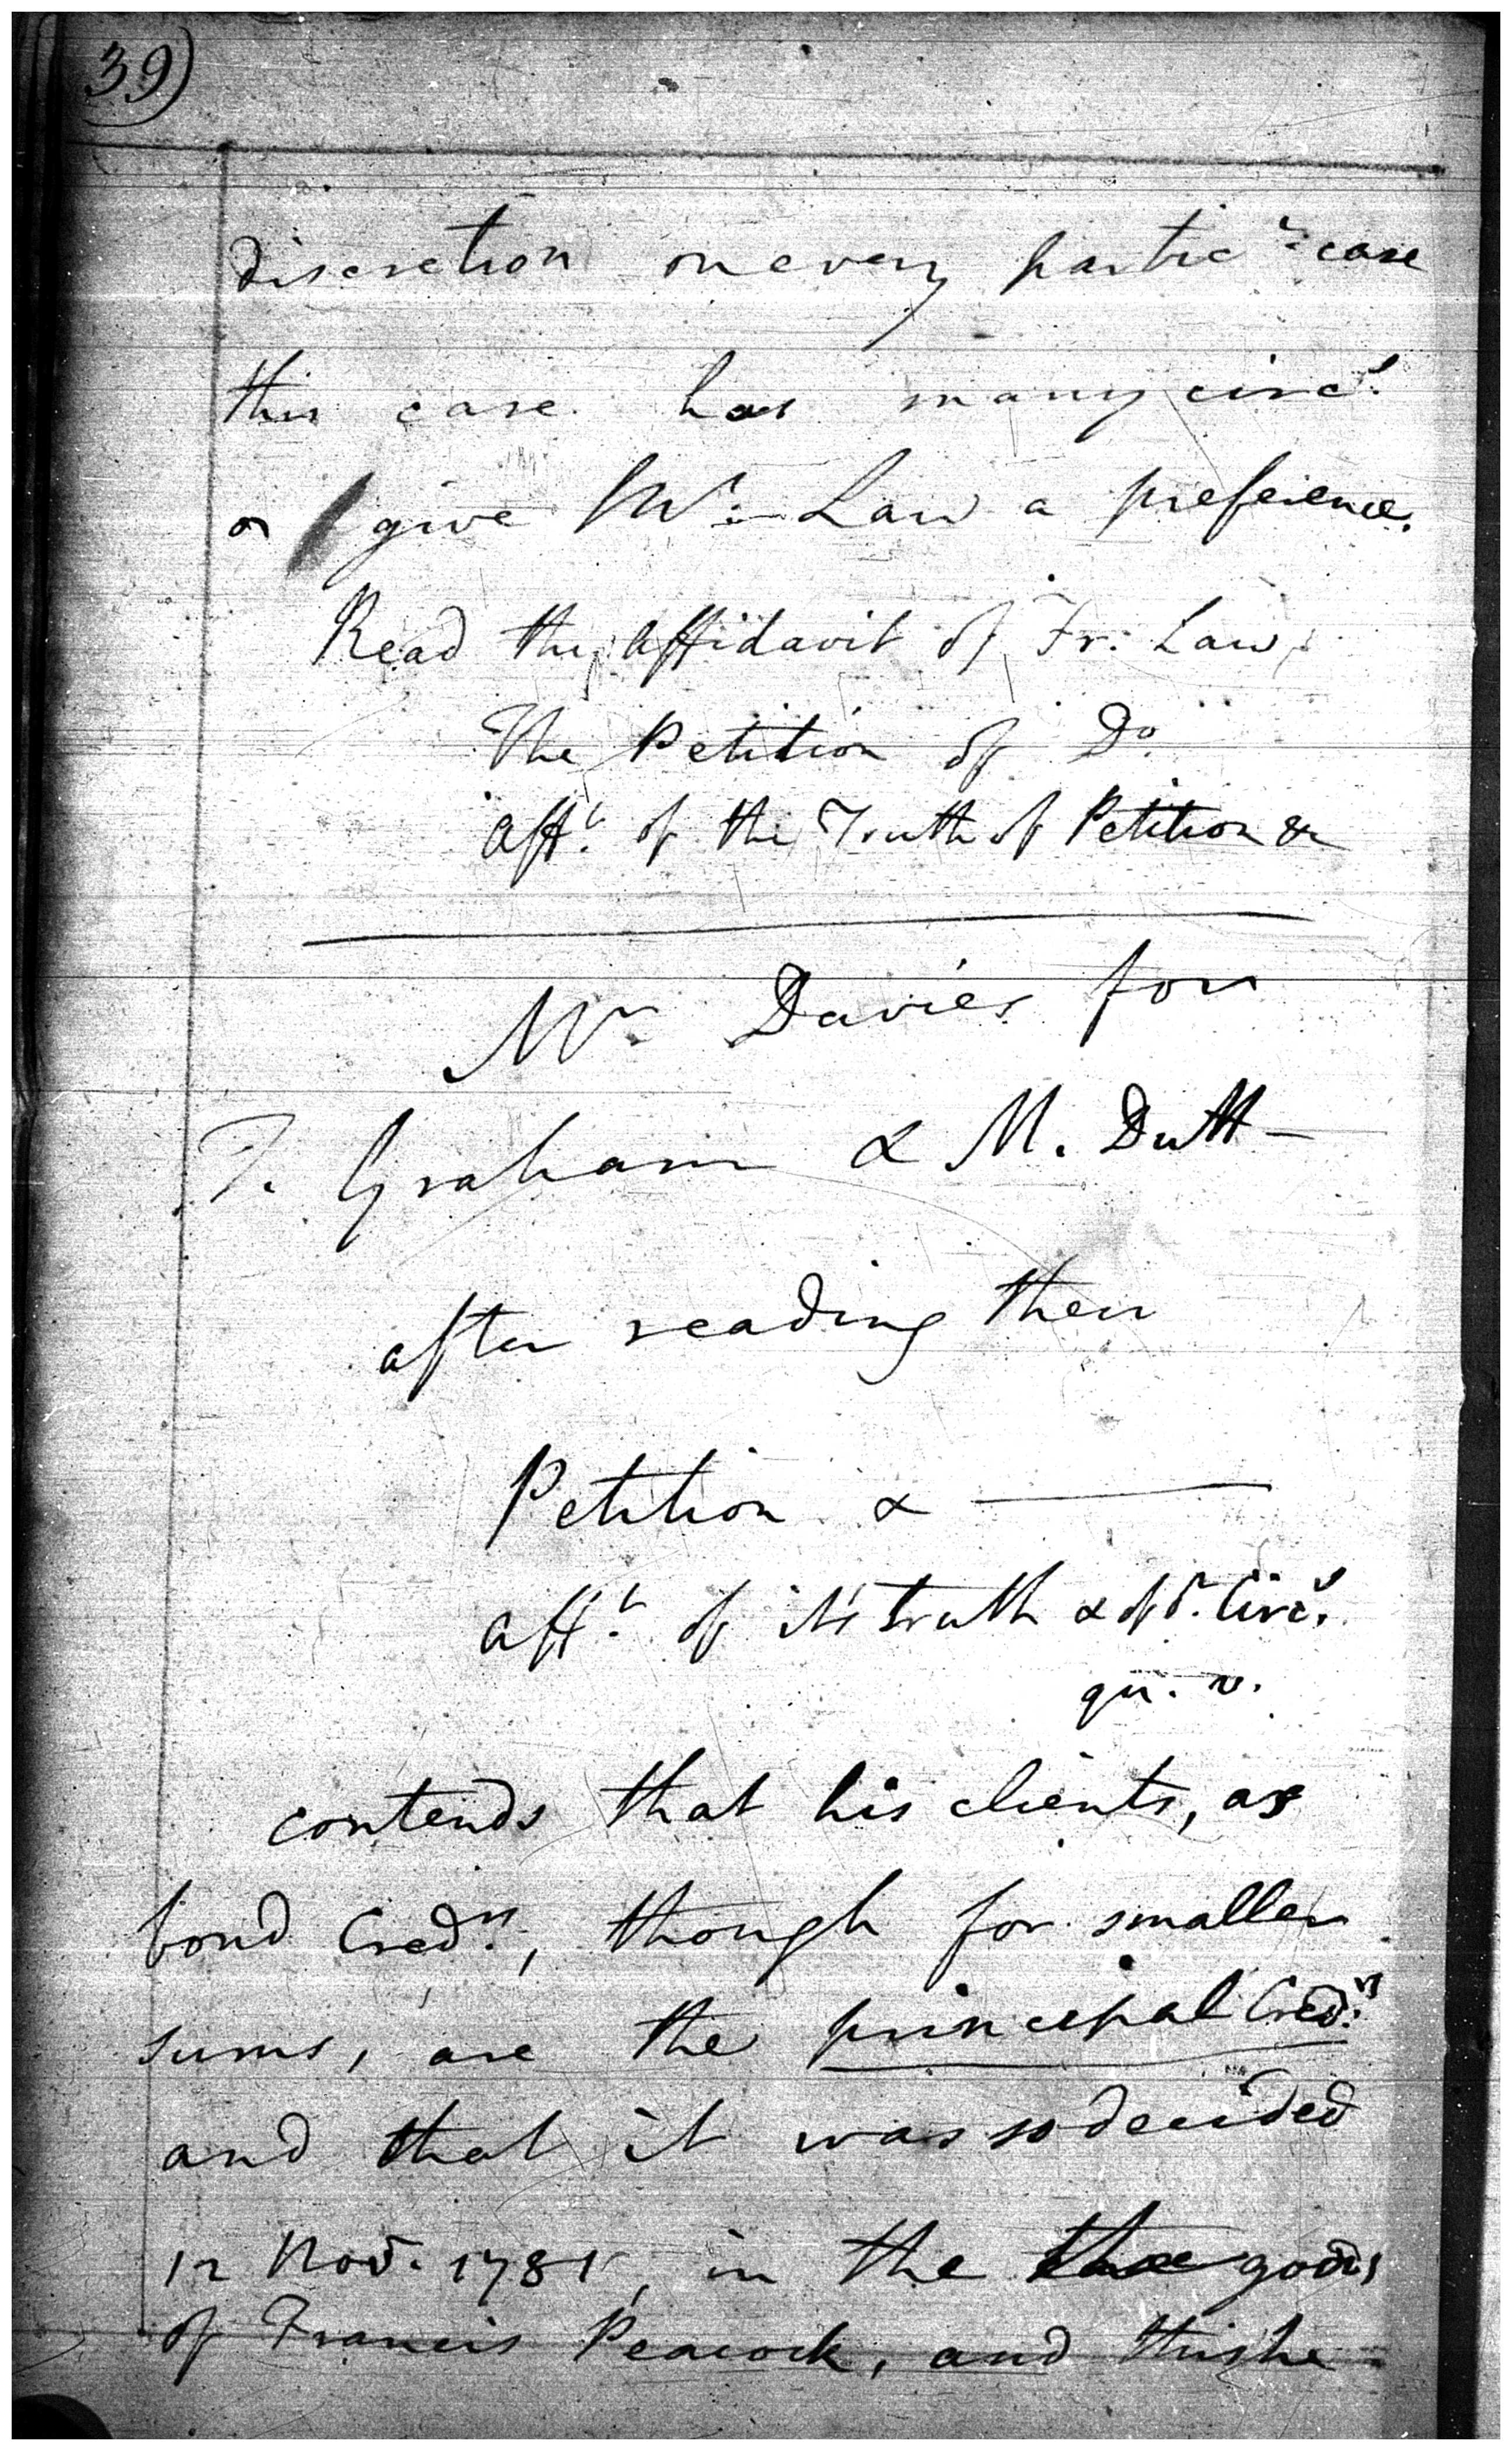 39)
discretion on every partic.r case
this case has many circ.s
give Mr. Law a preference.
Read the Affidavit of Fr. Law,
The Petition of Do.
Afft. of the Truth of Petition &
Mr Davies for
T. Graham & M. Dutt —
after reading their
Petition & —
Afft. of its truth & of Circs.
qu. v.
contends that his clients, as
bond Credrs., though for smaller
sums, are the principal Credrs.
and that it was so decided
12 Nov. 1781, in the goods
of Francis Peacock, and this he